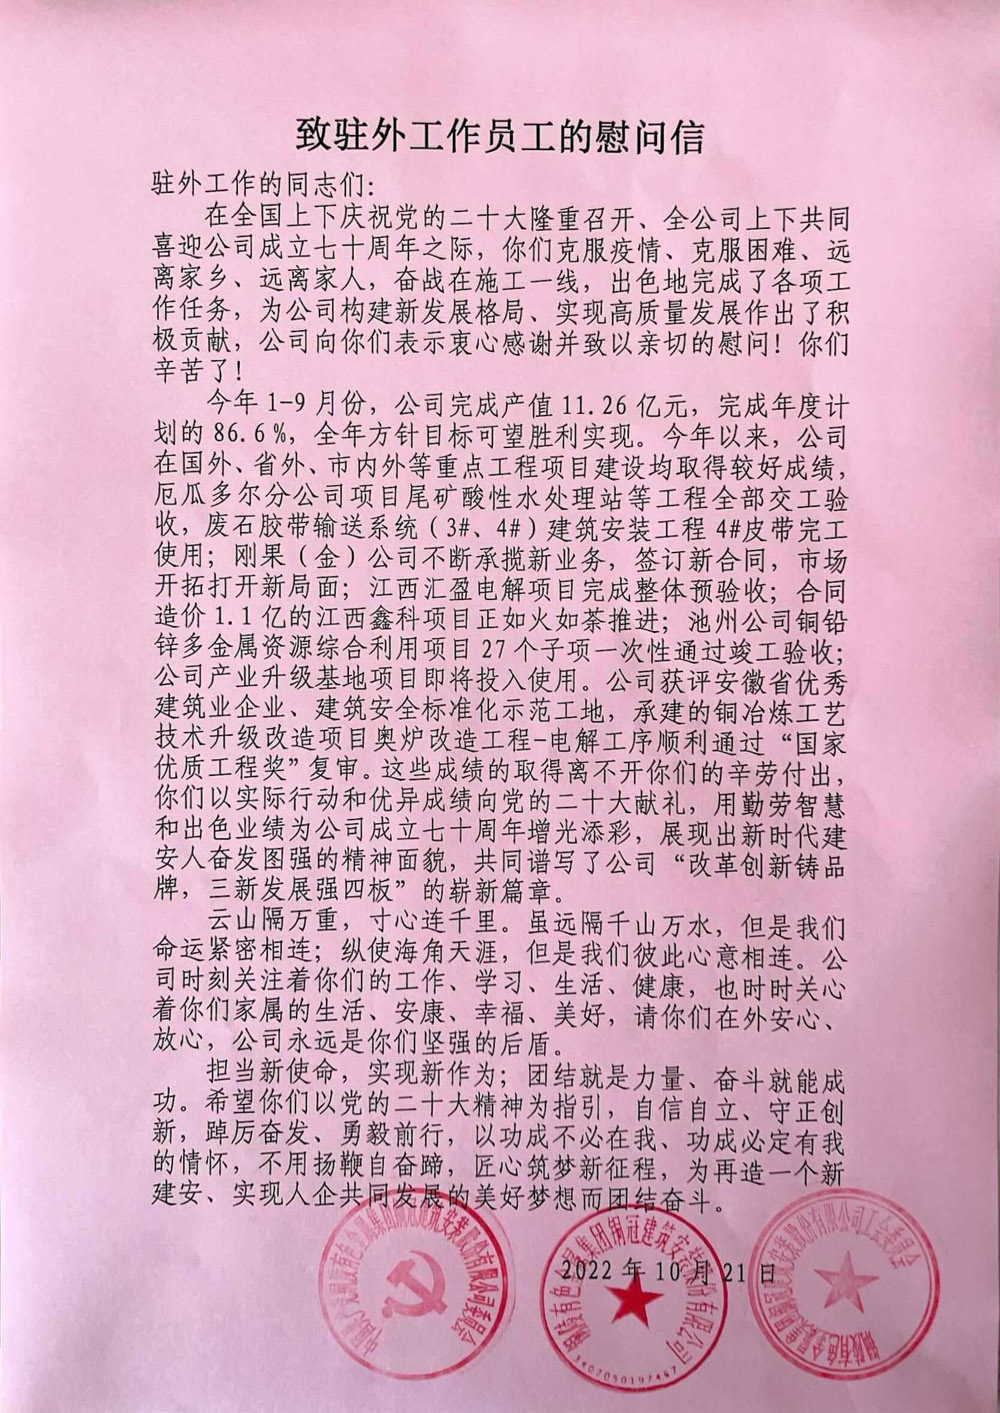 致驻外工作员工的慰问信
驻外工作的同志们：
在全国上下庆祝党的二十大隆重召开、全公司上下共同
喜迎公司成立七十周年之际，你们克服疫情、克服困难、远
离家乡、远离家人，奋战在施工一线，出色地完成了各项工
作任务，为公司构建新发展格局、实现高质量发展作出了积
极贡献，公司向你们表示衷心感谢并致以亲切的慰问！你们
辛苦了！
今年1-9月份，公司完成产值11.26亿元，完成年度计
划的86.6%，全年方针目标可望胜利实现。今年以来，公司
在国外、省外、市内外等重点工程项目建设均取得较好成绩，
厄瓜多尔分公司项目尾矿酸性水处理站等工程全部交工验
收，废石胶带输送系统（3#、4#）建筑安装工程4#皮带完工
使用；刚果（金）公司不断承揽新业务，签订新合同，市场
开拓打开新局面；江西汇盈电解项目完成整体预验收；合同
造价1.1亿的江西鑫科项目正如火如荼推进；池州公司铜铅
锌多金属资源综合利用项目27个子项一次性通过竣工验收；
公司产业升级基地项目即将投入使用。公司获评安徽省优秀
建筑业企业、建筑安全标准化示范工地，承建的铜冶炼工艺
技术升级改造项目奥炉改造工程-电解工序顺利通过“国家
优质工程奖”复审。这些成绩的取得离不开你们的辛劳付出，
你们以实际行动和优异成绩向党的二十大献礼，用勤劳智慧
和出色业绩为公司成立七十周年增光添彩，展现出新时代建
安人奋发图强的精神面貌，共同谱写了公司“改革创新铸品
牌，三新发展强四板”的崭新篇章。
云山隔万重，寸心连千里。虽远隔千山万水，但是我们
命运紧密相连；纵使海角天涯，但是我们彼此心意相连。公
司时刻关注着你们的工作、学习、生活、健康，也时时关心
着你们家属的生活、安康、幸福、美好，请你们在外安心、
放心，公司永远是你们坚强的后盾。
担当新使命，实现新作为；团结就是力量、奋斗就能成
功。希望你们以党的二十大精神为指引，自信自立、守正创
新，踔厉奋发、勇毅前行，以功成不必在我、功成必定有我
的情怀，不用扬鞭自奋蹄，匠心筑梦新征程，为再造一个新
建安、实现人企共同发展的美好梦想而团结奋斗。
铜陵有色金属集团铜冠建筑安装股份有限公司
2022年10月21日
3407050197467